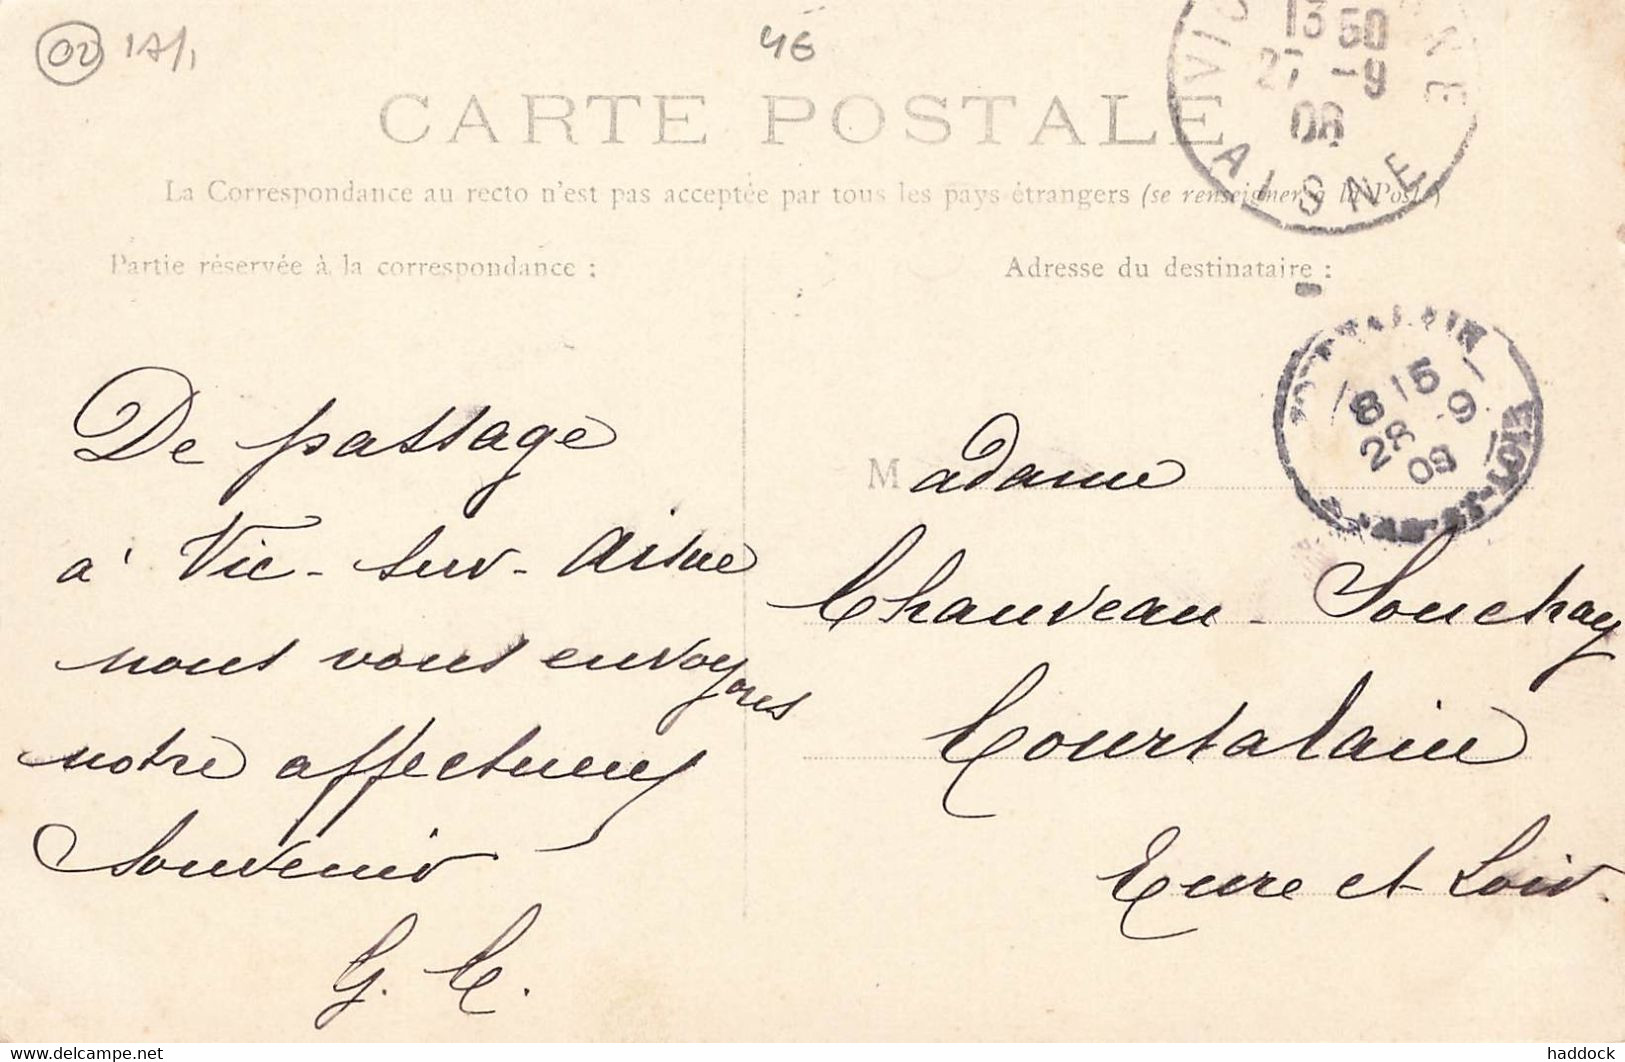 02 1A/1
4€
CARTE POSTALE
La Correspondance au recto n'est pas acceptée par tous les pays étrangers (se renseigner à la Poste)
Partie réservée à la correspondance :
Adresse du destinataire :
13 50
27 -9
08
AISNE
8 15
28 -9
08
De passage
à Vic-sur-Aisne
nous vous envoyons
notre affectueux
Souvenir
G. C.
Madame
Chauveau-Souchay
Courtalain
Eure et Loir.
Delcampe.net
haddock